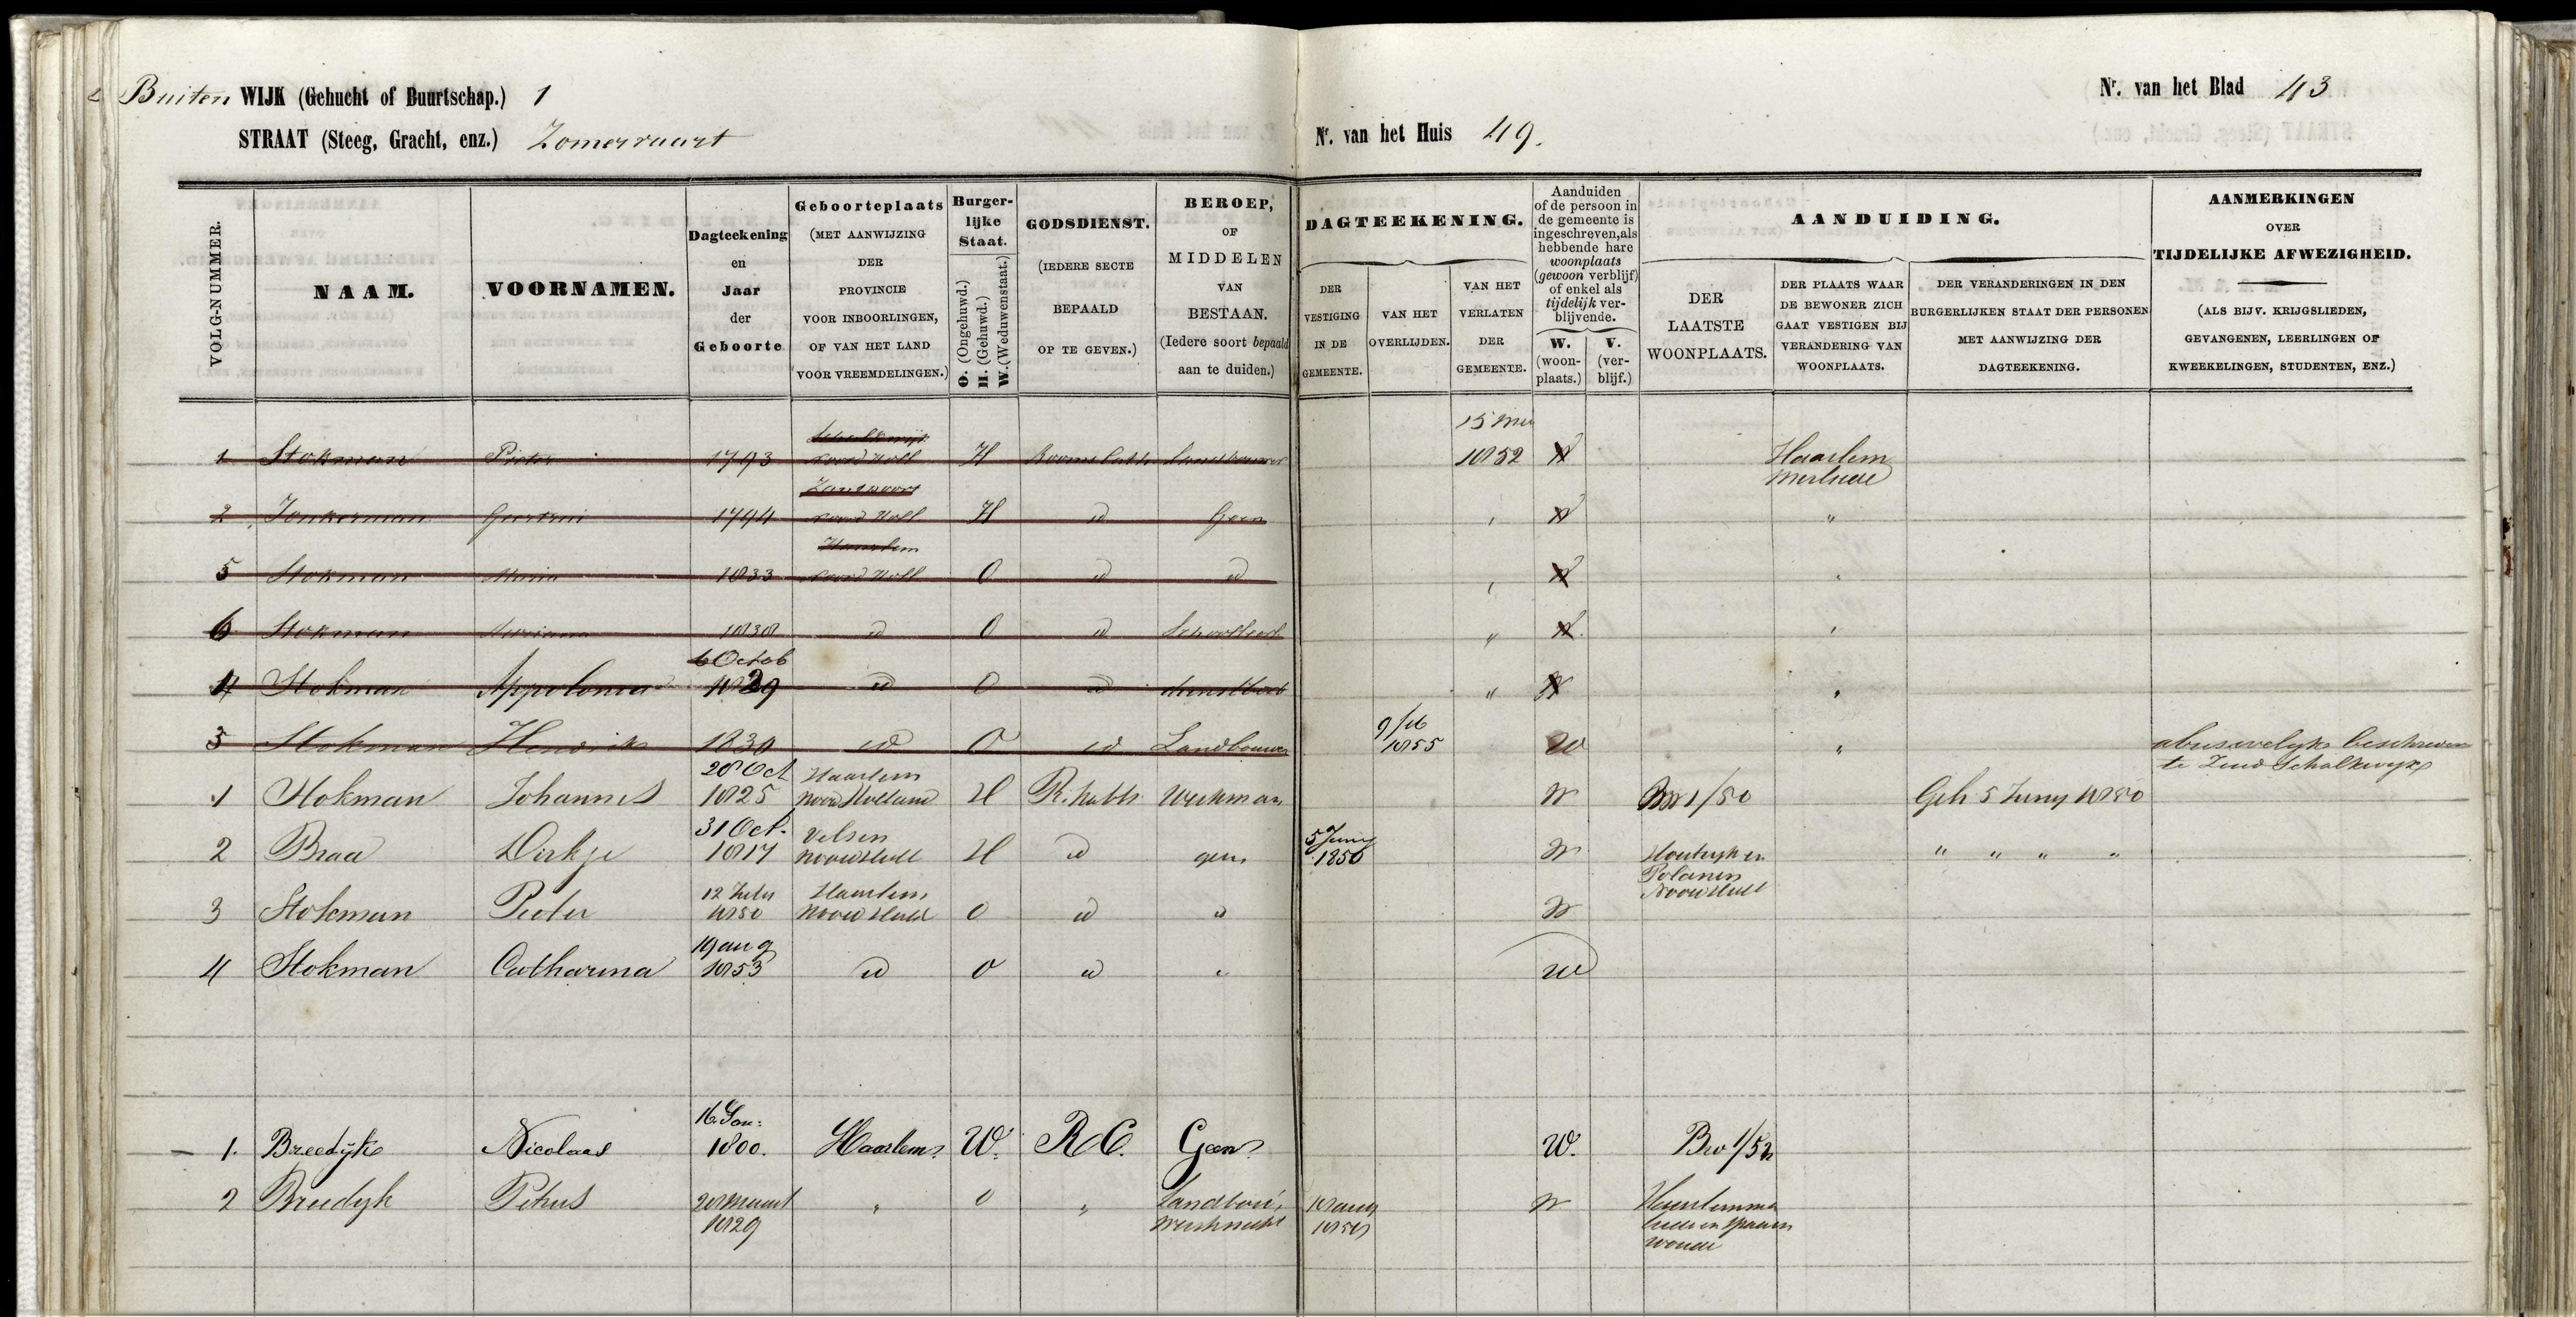 Buiten WIJK (Gehucht of Buurtschap.) 1
Nr. van het Blad 43
STRAAT (Steeg, Gracht, enz.) Zomervaart
Nr. van het Huis 49.
VOLG-NUMMER.
NAAM.
VOORNAMEN.
Dagteekening
en
Jaar
der
Geboorte
Geboorteplaats
(MET AANWIJZING
DER
PROVINCIE
VOOR INBOORLINGEN,
OF VAN HET LAND
VOOR VREEMDELINGEN.)
Burger-
lijke
Staat.
O. (Ongehuwd.)
H. (Gehuwd.)
W. (Weduwenstaat.)
GODSDIENST.
(IEDERE SECTE
BEPAALD
OP TE GEVEN.)
BEROEP,
OF
MIDDELEN
VAN
BESTAAN.
(Iedere soort bepaald
aan te duiden.)
DAGTEEKENING.
DER
VESTIGING
IN DE
GEMEENTE.
VAN HET
OVERLIJDEN.
VAN HET
VERLATEN
DER
GEMEENTE.
Aanduiden
of de persoon in
de gemeente is
ingeschreven, als
hebbende hare
woonplaats
(gewoon verblijf)
of enkel als
tijdelijk ver-
blijvende.
W.
(woon-
plaats.)
V.
(ver-
blijf.)
AANDUIDING.
DER
LAATSTE
WOONPLAATS.
DER PLAATS WAAR
DE BEWONER ZICH
GAAT VESTIGEN BIJ
VERANDERING VAN
WOONPLAATS.
DER VERANDERINGEN IN DEN
BURGERLIJKEN STAAT DER PERSONEN
MET AANWIJZING DER
DAGTEEKENING.
AANMERKINGEN
OVER
TIJDELIJKE AFWEZIGHEID.
(ALS BIJV. KRIJGSLIEDEN,
GEVANGENEN, LEERLINGEN OF
KWEEKELINGEN, STUDENTEN, ENZ.)
Schalkwijk 15 Mei
1 Stokman Pieter 1793 Noord Holl H Roomsch Cath Landbouwer 1852 W Haarlem
merliede
Zantvoort
2 Jonkerman Geertrui 1794 Noord Holl H id Geen , W "
Haarlem
5 Stokman Maria 1833 Noord Holl O id id , W "
6 Stokman Adriana 1838 id O id " W "
6 Octob
4 Stokman Appolonia 1829 id O id dienstbode " W "
9 feb
3 Stokman Hendrik 1830 id O id Landbouwer 1855 W " abusivelijk beschreven
te Zuid Schalkwijk
28 Oct Haarlem
1 Stokman Johannes 1825 Noord Holland H R. Kath Werkman W Bw 1/50 Geh 5 Juny 1850
31 Oct. Velsen 5 Juny
2 Braa Dirkje 1817 Noord Holl H id geen 1850 W Houtryk en " " " "
Polanen
Noord Holl
12 July Haarlem
3 Stokman Pieter 1850 Noord Holl O id " W
19 aug
4 Stokman Catharina 1853 id O id " W
16 Jan:
1. Breedijk Nicolaas 1800. Haarlem W. R.C. Geen W. Bw 1/52
2 Breedyk Petrus 28 Maart " O " Landbou 18 aug W Haarlemme
1829 werknecht liede en Spaarn
woude